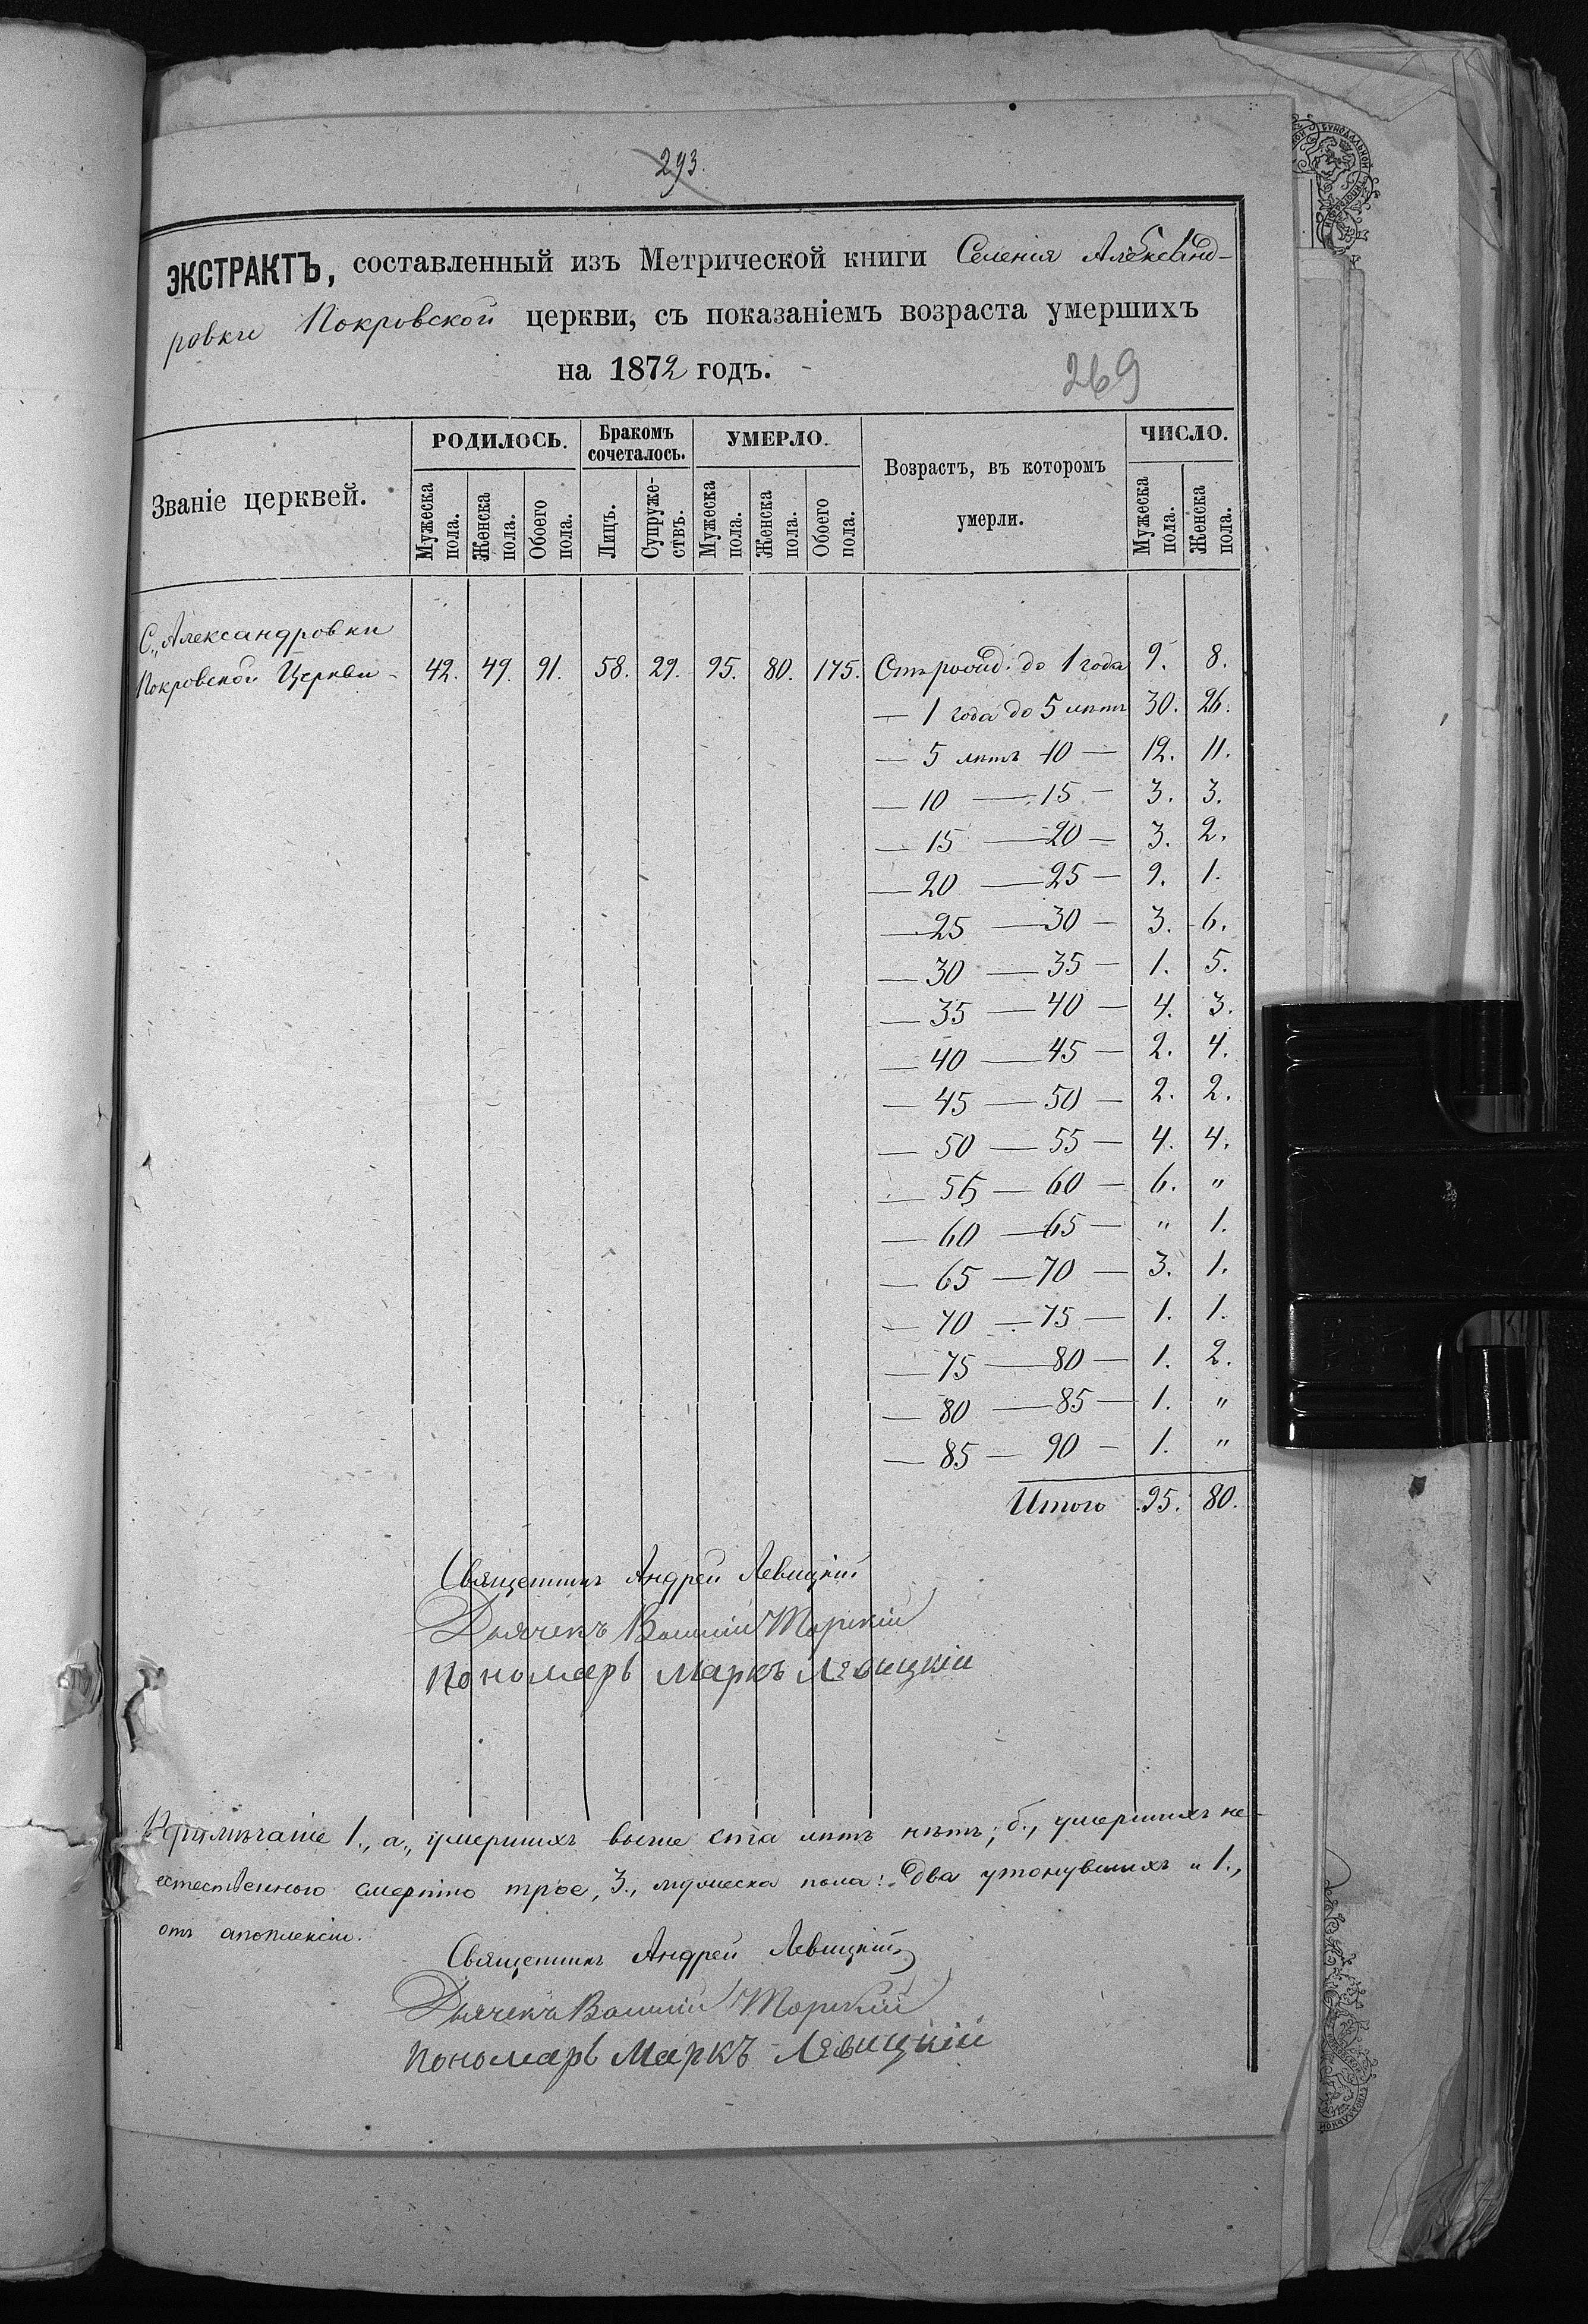 293.
ЭКСТРАКТЪ, составленный изъ Метрической книги Селенія Александ-
ровки Покровской церкви, съ показаніемъ возраста умершихъ
на 1872 годъ.
269
Званіе церквей.
РОДИЛОСЬ.
Бракомъ сочеталось.
УМЕРЛО.
Возрастъ, въ которомъ умерли.
ЧИСЛО.
Мужеска пола.
Женска пола.
Обоего пола.
Лицъ.
Супружествъ.
Мужеска пола.
Женска пола.
Обоего пола.
Мужеска пола.
Женска пола.
С. Александровки
Покровской Церкви - 42. 49. 91. 58. 29. 95. 80. 175. Отъ рожд. до 1 года 9. 8.
— 1 года до 5 лѣтъ 30. 26.
— 5 лѣтъ 10 — 12. 11.
— 10 — 15 — 3. 3.
— 15 — 20 — 3. 2.
— 20 — 25 — 9. 1.
— 25 — 30 — 3. 6.
— 30 — 35 — 1. 5.
— 35 — 40 — 4. 3.
— 40 — 45 — 2. 4.
— 45 — 50 — 2. 2.
— 50 — 55 — 4. 4.
— 55 — 60 — 6. "
— 60 — 65 — " 1.
— 65 — 70 — 3. 1.
— 70 — 75 — 1. 1.
— 75 — 80 — 1. 2.
— 80 — 85 — 1. "
— 85 — 90 — 1. "
Итого 95. 80.
Священникъ Андрей Левицкій
Дьячекъ Василій
Пономарь Маркъ Левицкій
Примѣчаніе 1., а., умершихъ выше ста лѣтъ нѣтъ; б., умершихъ не-
естественною смертію трое, 3., мужеска пола: два утонувшихъ и 1.,
отъ апоплексіи.
Священникъ Андрей Левицкій
Дьячекъ Василій
Пономарь Маркъ Левицкій